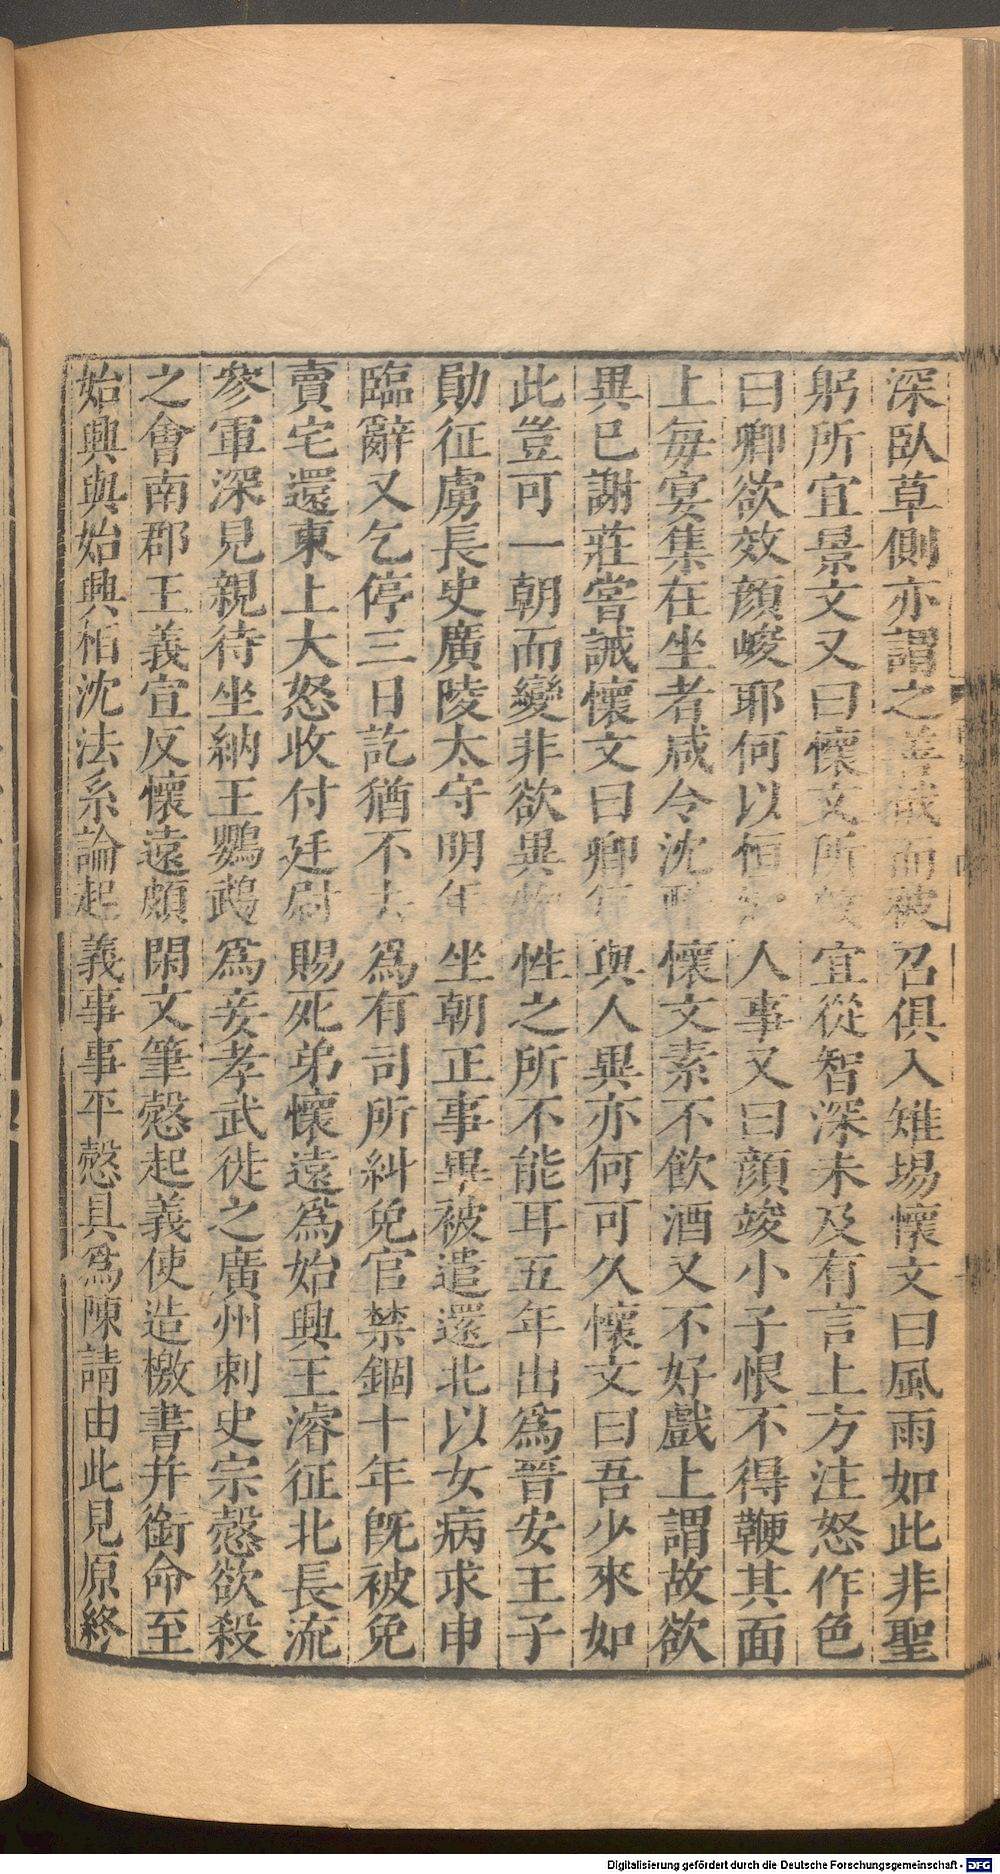 深臥草側亦謂之善俄而被召俱入雉場懷文曰風雨如此非聖
躬所宜景文又曰懷文所啟宜從智深未及有言上方注怒作色
曰卿欲效顔峻耶何以恒知人事又曰顔竣小子恨不得鞭其面
上每宴集在坐者咸令沈醉懷文素不飲酒又不好戲上謂故欲
異已謝莊嘗誡懷文曰卿每與人異亦何可久懷文曰吾少來如
此豈可一朝而變非欲異物性之所不能耳五年出爲晉安王子
勛征虜長史廣陵太守明年坐朝正事畢被遣還北以女病求申
臨辭又乞停三日訖猶不去爲有司所糾免官禁錮十年旣被免
賣宅還東上大怒收付廷尉賜死弟懷遠爲始興王濬征北長流
參軍深見親待坐納王鸚鵡爲妾孝武徙之廣州刺史宗慤欲殺
之會南郡王義宣反懷遠頗閑文筆慤起義使造檄書幷銜命至
始興與始興相沈法系論起義事事平慤具爲陳請由此見原終
Digitalisierung gefördert durch die Deutsche Forschungsgemeinschaft - DFG